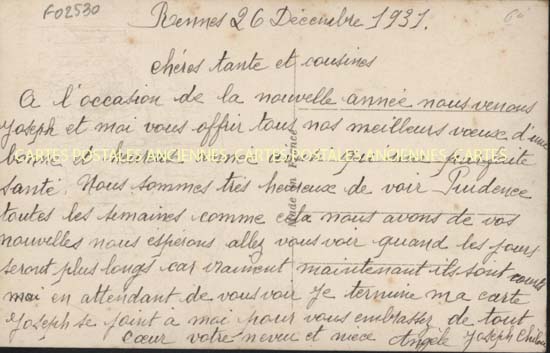 F02530
Rennes 26 Décembre 1931.
chéres tante et cousines
A l'occasion de la nouvelle année nous venons
Joseph et moi vous offrir tous nos meilleurs vœux d'une
bonne et heureuse année ainsi que d'une parfaite
CARTES POSTALES ANCIENNES CARTES POSTALES ANCIENNES CARTES
santé. Nous sommes très heureux de voir Prudence
toutes les semaines comme cela nous avons de vos
nouvelles nous espérons allez vous voir quand les jours
seront plus longs car vraiment maintenant ils sont courts
moi en attendant de vous voir je termine ma carte
Joseph se joint a moi pour vous embrassez de tout
cœur votre neveu et niece Angèle Joseph
Made in France